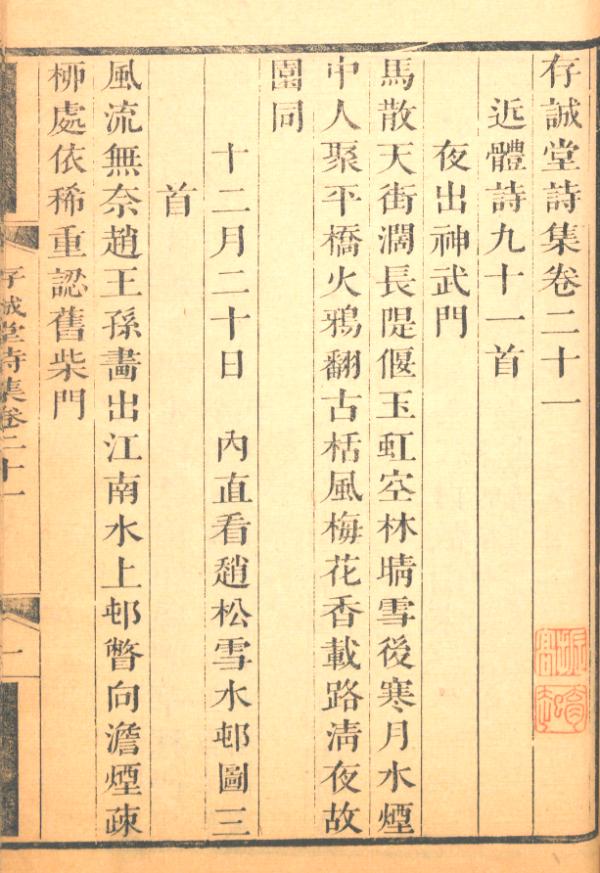 存誠堂詩集卷二十一
近體詩九十一首
夜出神武門
馬散天街濶長隄偃玉虹空林晴雪後寒月水煙
中人聚平橋火鴉翻古栝風梅花香載路清夜故
園同
十二月二十日 內直看趙松雪水邨圖三
首
風流無奈趙王孫畵出江南水上邨瞥向澹煙疎
栁處依稀重認舊柴門
存誠堂詩集卷二十一
一